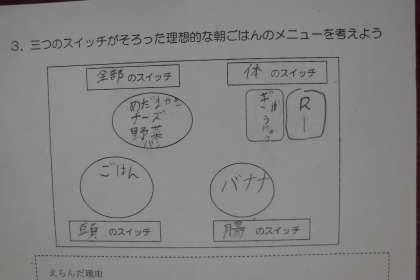 3. 三つのスイッチがそろった理想的な朝ごはんのメニューを考えよう
全部のスイッチ
体のスイッチ
めだまやき
チーズ
野菜
パン
ぎゅうにゅう
R-1
ごはん
バナナ
頭のスイッチ
腸のスイッチ
えらんだ理由